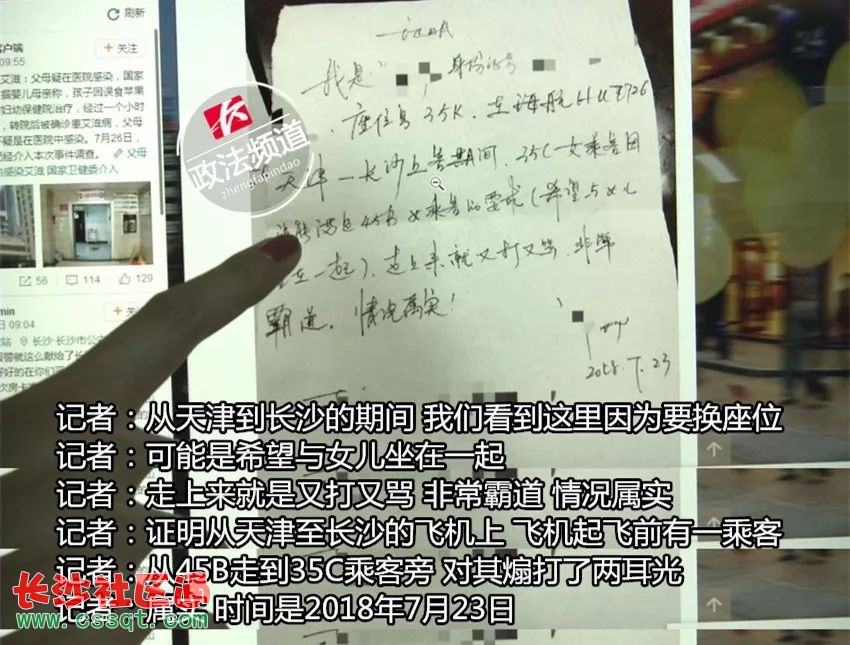 刷新
客户端
09:55
+关注
艾滋：父母疑在医院感染，国家
据婴儿母亲称，孩子因误食苹果
妇幼保健院治疗，经过一个小时
，转院后被确诊重艾滋病，父母
不疑是在医院中感染。7月26日，
已经介入本次事件调查。
父母
感染艾滋 国家卫健委介入
56
114
129
min
+关
09:04
长沙 长沙市公
证明
我是
身份证号
座位号35K，在海航HU7726
天津—长沙五号期间，35C一女乘客因
没能满足45B女乘客的要求（希望与女儿
坐在一起），走上来就又打又骂，非常
霸道，情况属实！
2018.7.23
长
政法频道
zhengfapindao
记者：从天津到长沙的期间 我们看到这里因为要换座位
记者：可能是希望与女儿坐在一起
记者：走上来就是又打又骂 非常霸道 情况属实
记者：证明从天津至长沙的飞机上 飞机起飞前有一乘客
记者：从45B走到35C乘客旁 对其煽打了两耳光
记者：属实 时间是2018年7月23日
长沙社区通
www.cssqt.com